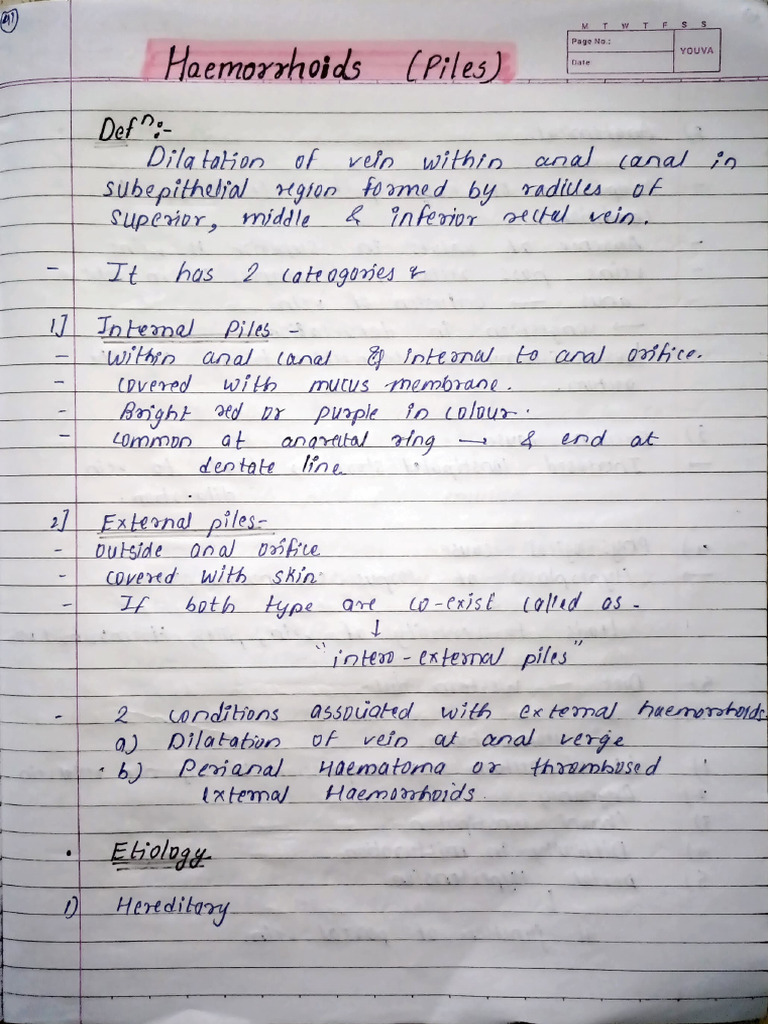 M T W T F S S
Page No.:
Date
YOUVA
Haemorrhoids (Piles)
Defn:-
Dilatation of vein within anal canal in
subepithelial region formed by radicles of
superior, middle & inferior rectal vein.
- It has 2 cateogories &
1] Internal Piles -
- within anal canal & internal to anal orifice.
- covered with mucus membrane.
- Bright red or purple in colour.
- common at anorectal ring → & end at
dentate line
2] External piles-
- outside anal orifice
- covered with skin
- If both type are co-exist called as -
↓
"intero-external piles"
- 2 conditions associated with external haemorrhoids.
a) Dilatation of vein at anal verge
b) Perianal Haematoma or thrombosed
external Haemorrhoids.
• Etiology
1) Hereditary